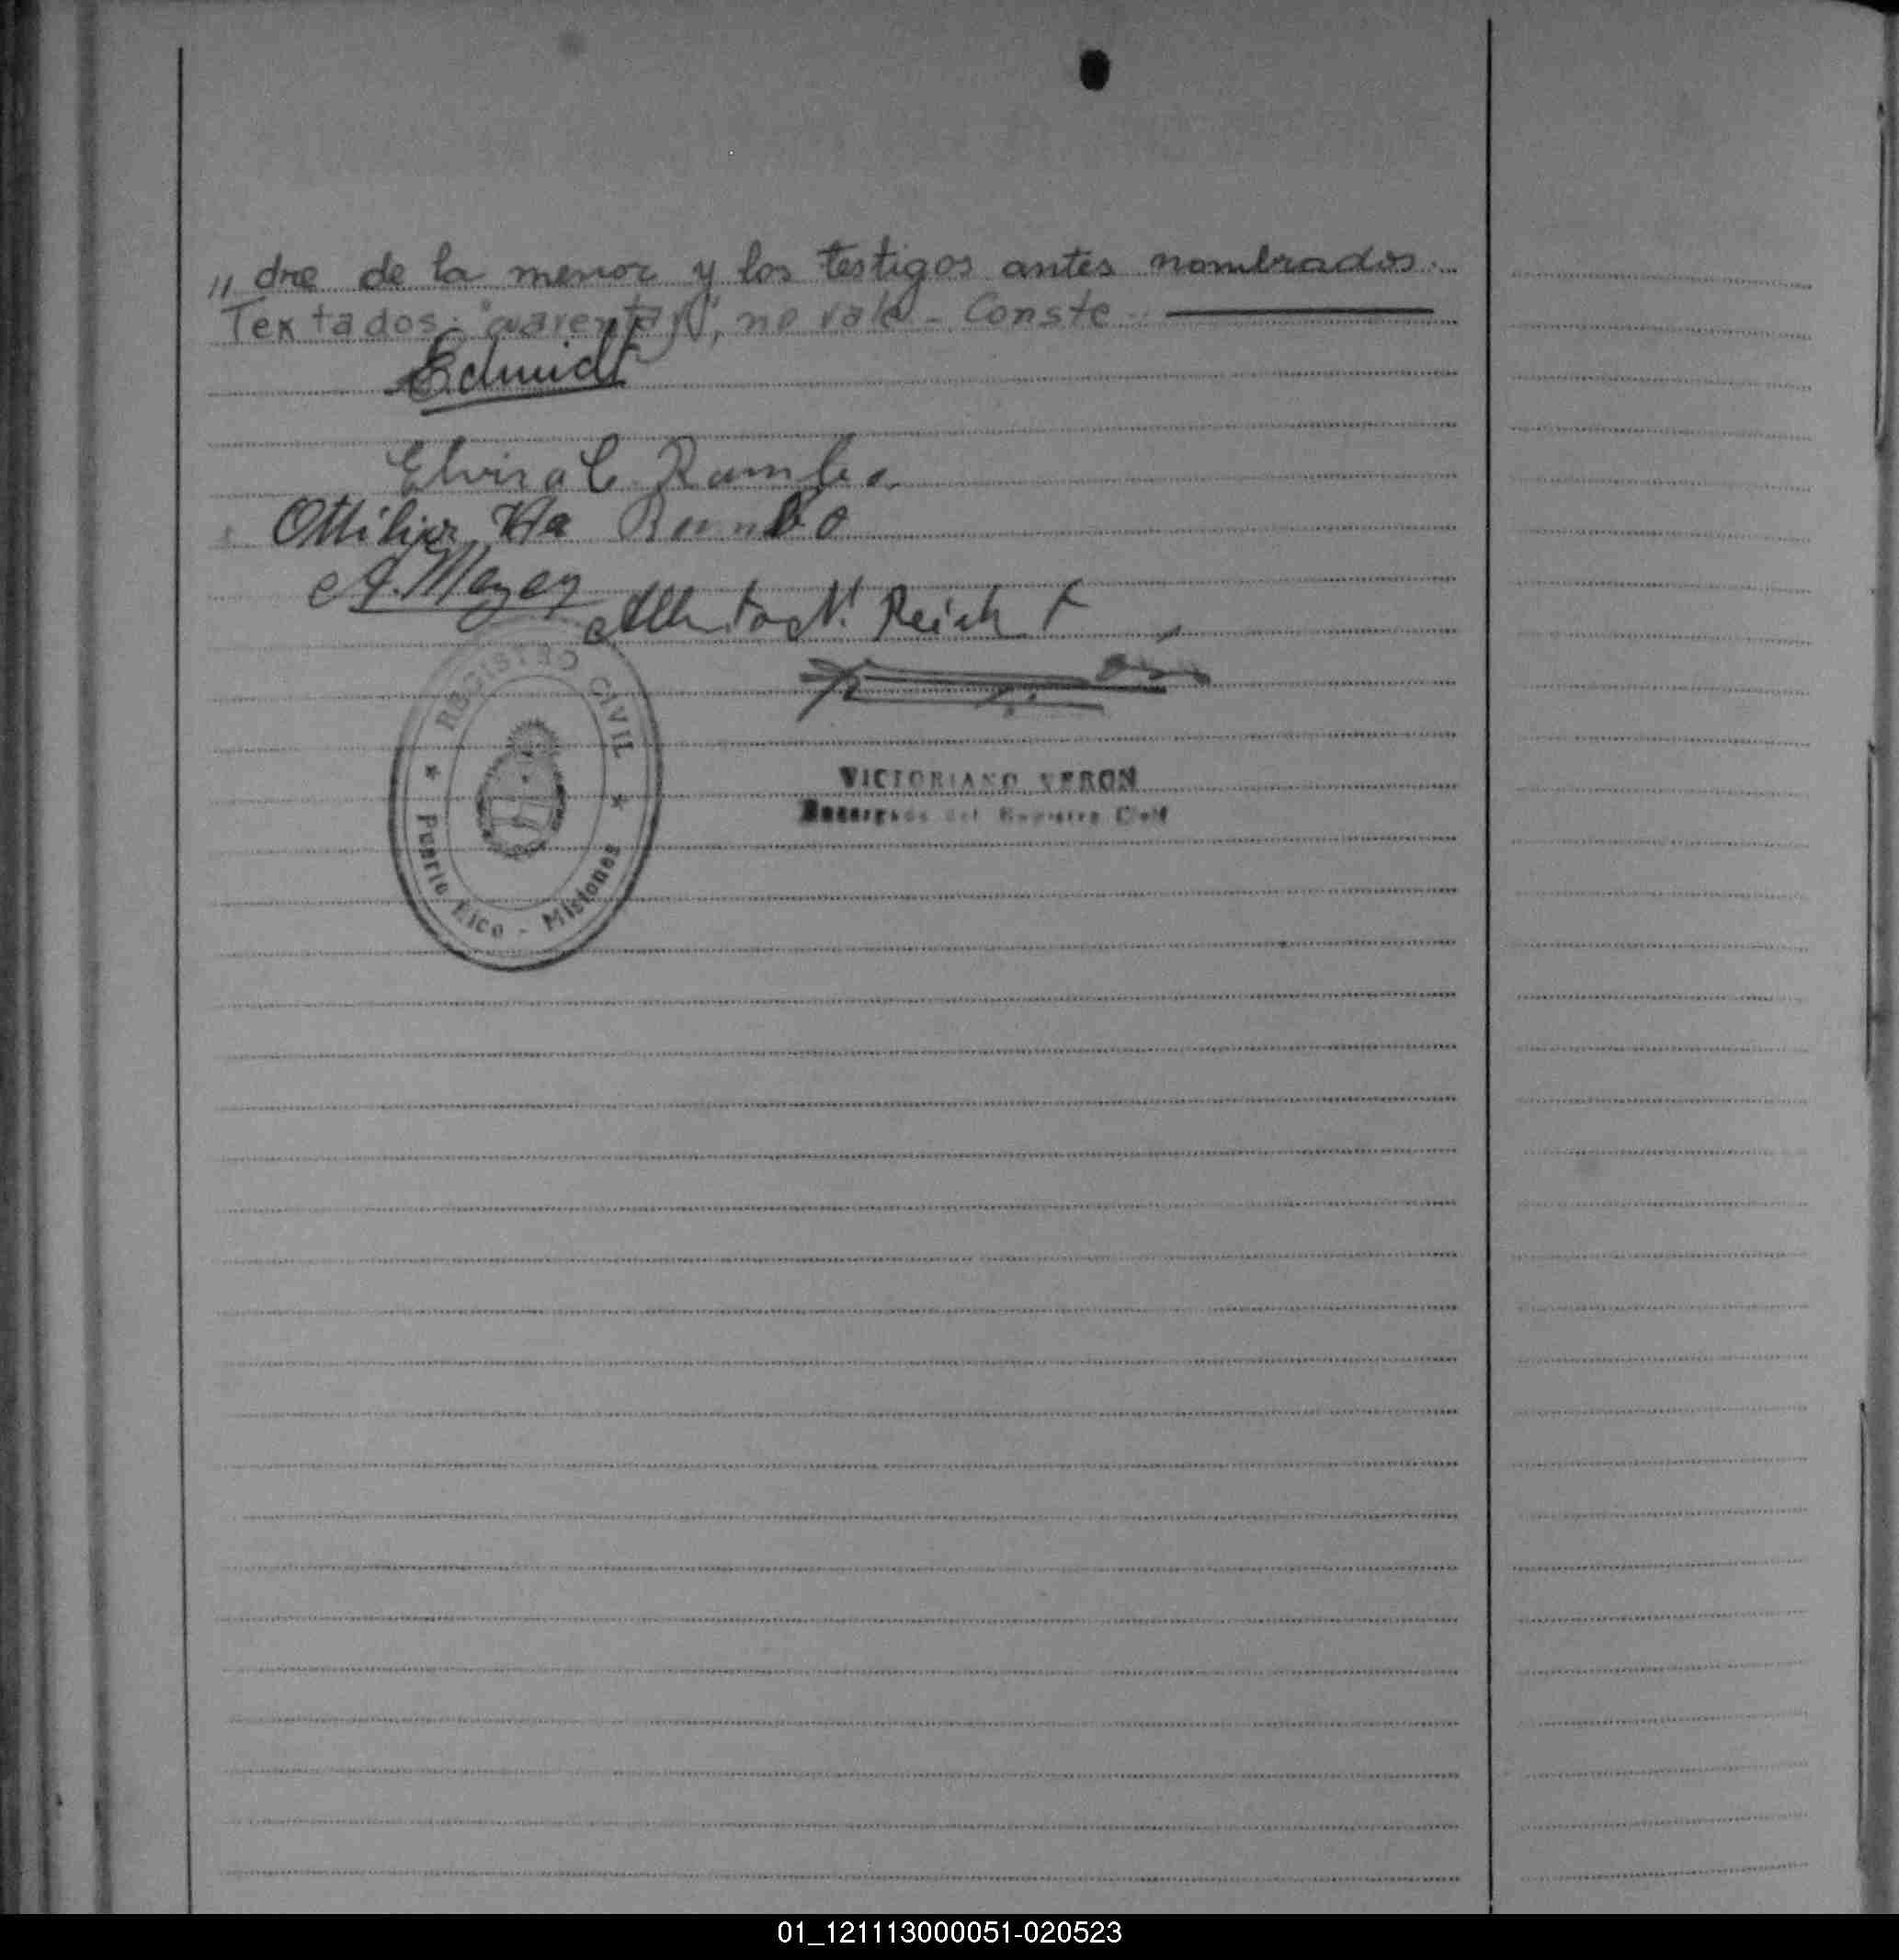 " dre de la menor y los testigos antes nombrados.
Textados: "cuarenta y", no vale - Conste
Schmidt
Elvira C. Rambo
Ottilia Vda Rambo
A. Mayer
Alberto N. Reichert
REGISTRO CIVIL
Puerto Rico - Misiones
VICTORIANO VERON
Encargado del Registro Civil
01_121113000051-020523